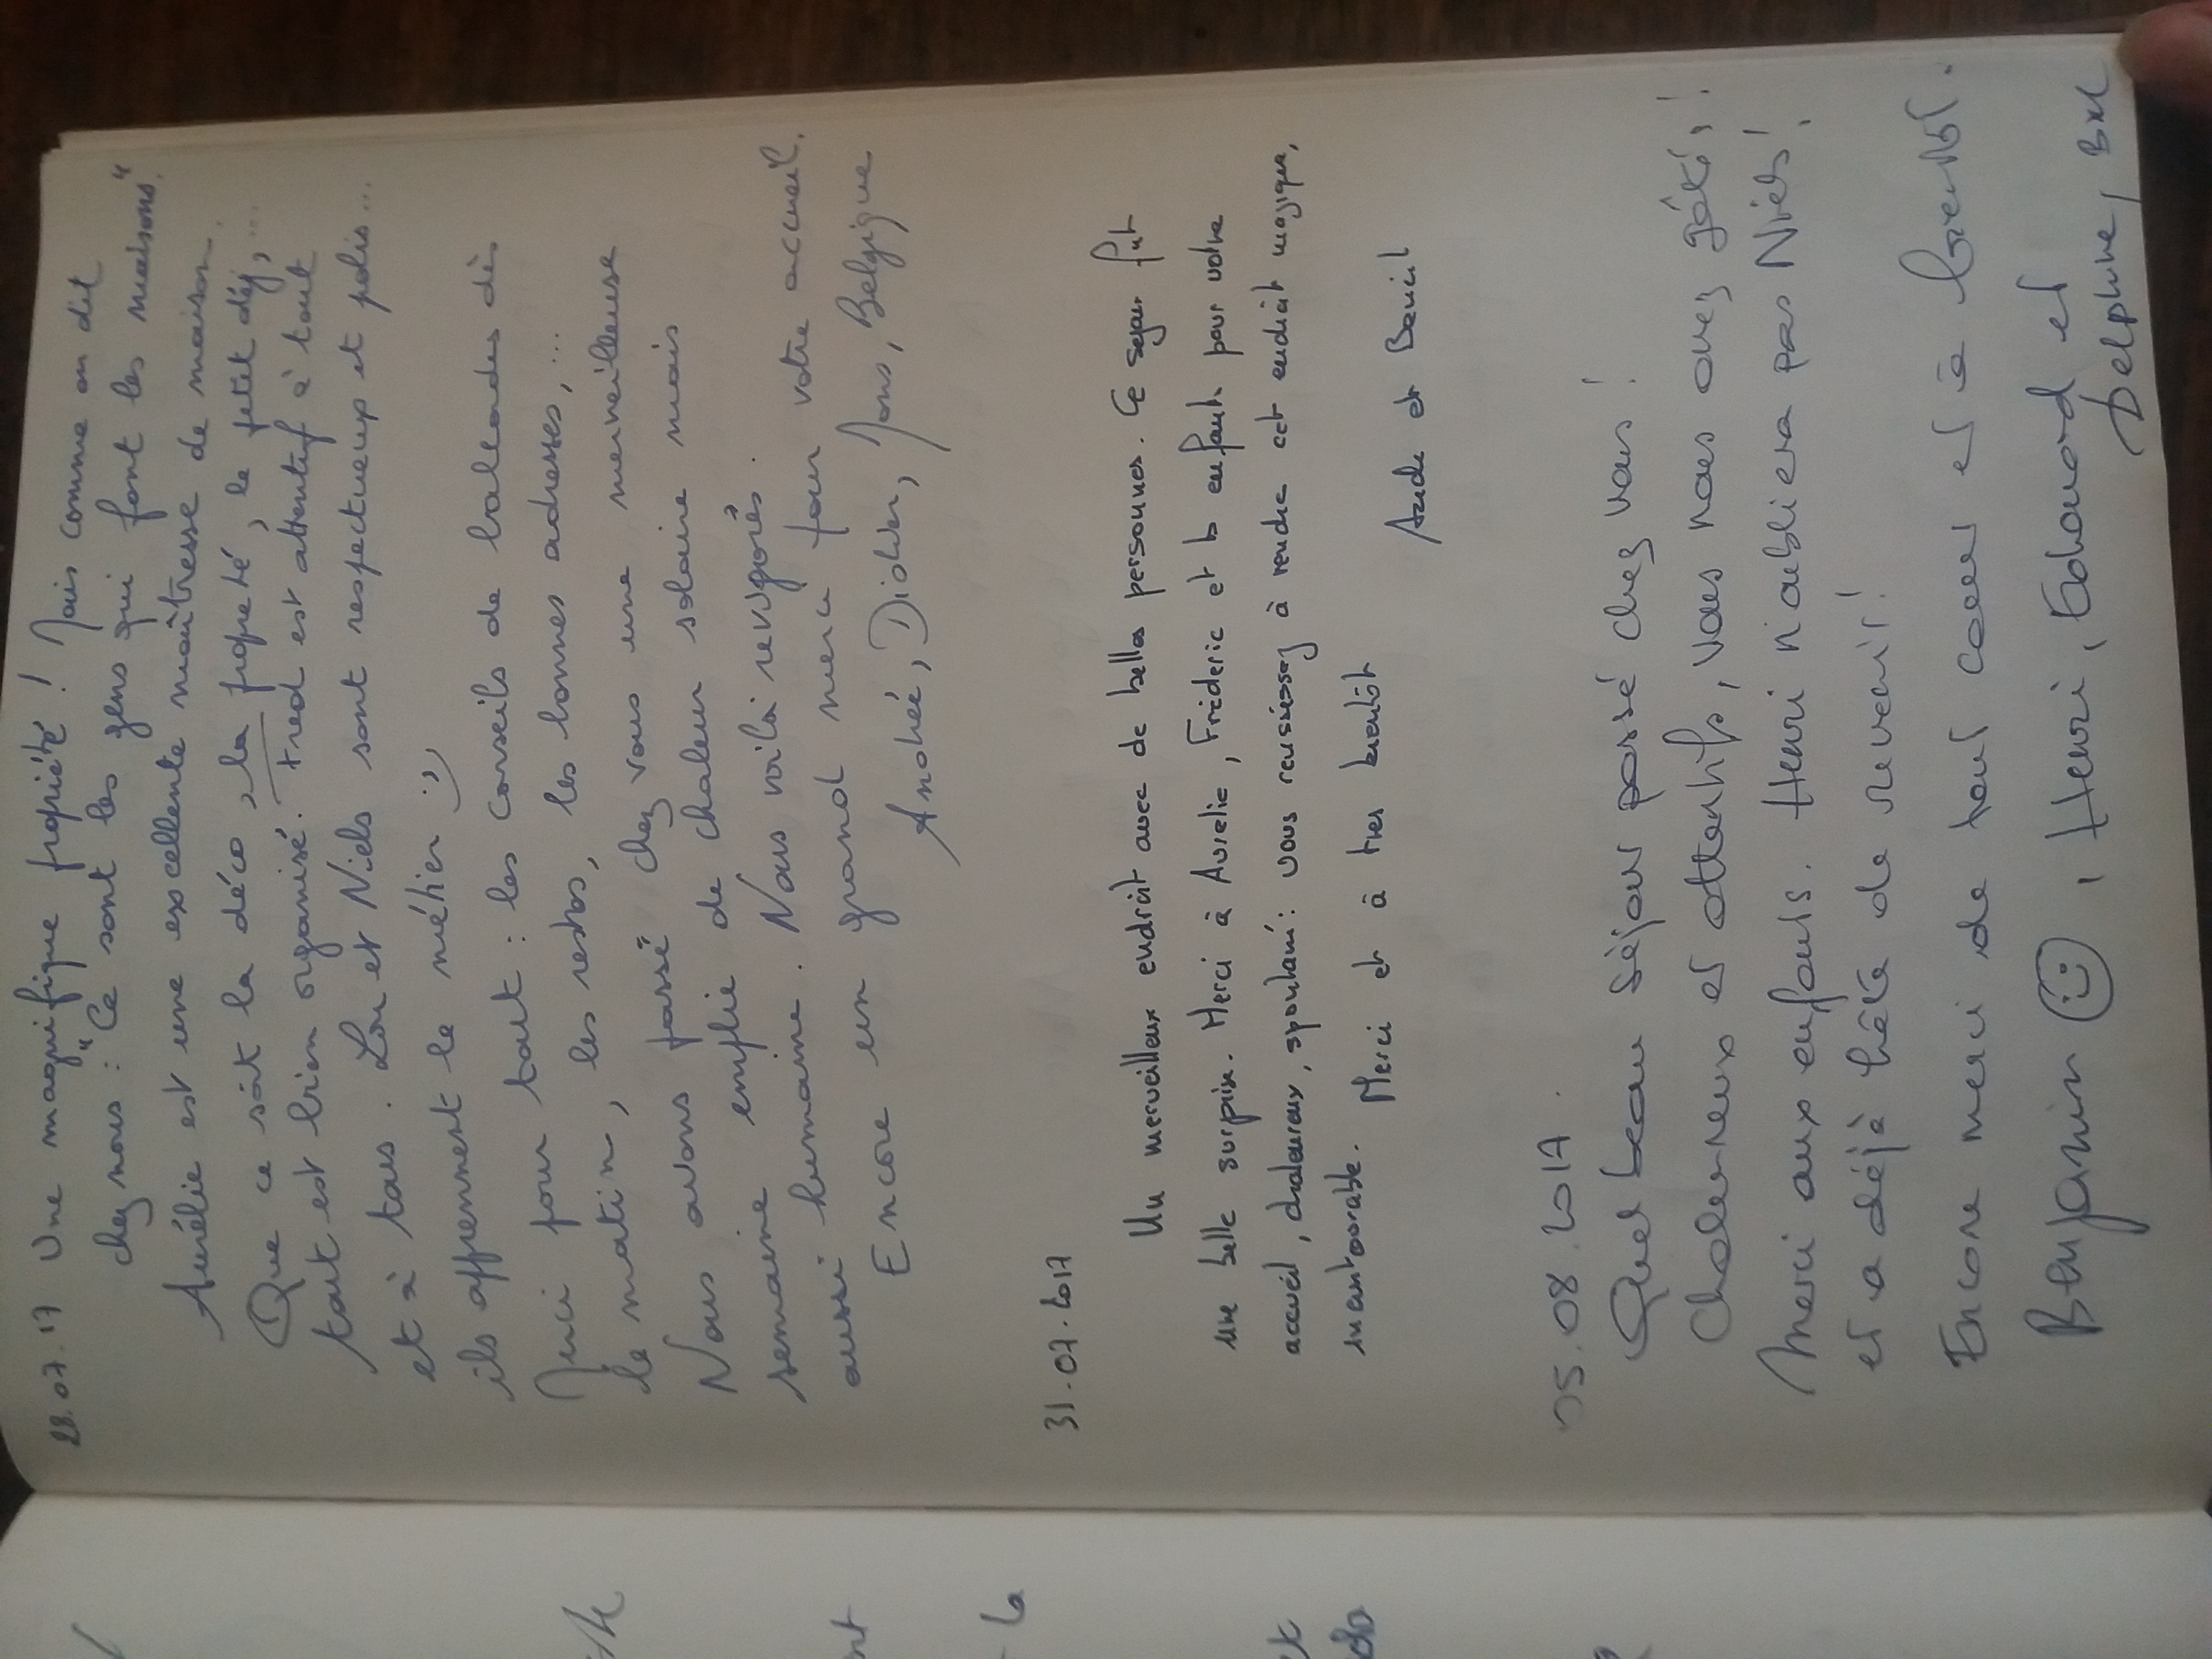 28.07.17 Une magnifique propriété ! Mais comme on dit
chez nous : "Ce sont les gens qui font les maisons".
Aurélie est une excellente maîtresse de maison.
Que ce soit la déco, la propreté, le petit déj, ...
tout est bien organisé. Fred est attentif à tout
et à tous. Lou et Niels sont respectueux et polis...
ils apprennent le métier :-)
Merci pour tout : les conseils de ballades dès
le matin, les restos, les bonnes adresses, ...
Nous avons passé chez vous une merveilleuse
semaine emplie de chaleur solaire mais
aussi humaine. Nous voilà revigorés.
Encore un grand merci pour votre accueil.
Andrée, Didier, Mons, Belgique
31.07.2017
Un merveilleux endroit avec de belles personnes. Ce sejour fut
une belle surprise. Merci à Aurelie, Frederic et les enfants pour votre
accueil, chaleureux, spontané : vous reussissez à rendre cet endroit magique,
incontournable.
Merci et à tres bientôt
Aude et Benoit
05.08.2017.
Quel beau séjour passé chez vous !
Chaleureux et attentifs, vous nous avez gâtés !
Merci aux enfants. Henri n'oubliera pas Niels !
et a déjà hâte de revenir !
Encore merci de tout coeur et à bientôt.
Benjamin ☺, Henri, Edouard et
Delphine, Bxl
la